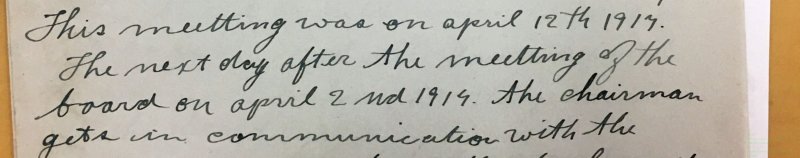 This meetting was on april 12th 1914.
The next day after the meetting of the
board on april 2 nd 1914. the chairman
gets in communication with the